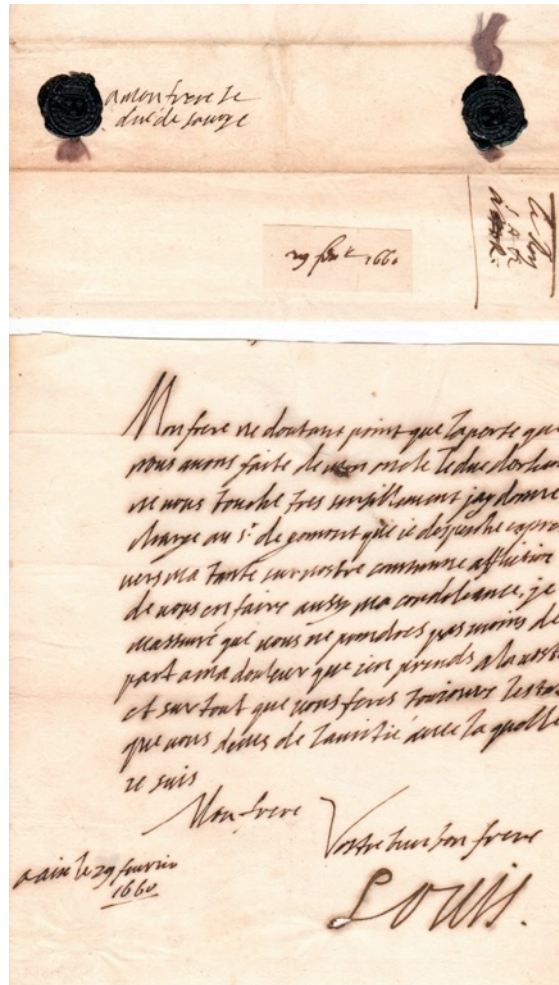 a Mon frere le
duc de savoye
29 feu.er 1660
Mon frere ne doutant point que la perte que
nous auons faite de mon oncle le duc dorlea
ne vous touche tres sensiblement jay donné
charge au s.r de gomont que ie despesche expre
vers ma tante sur nostre commune affliction
de vous en faire aussy ma condoleance, je
massure que vous ne prendres pas moins de
part a ma douleur que ien prends a la vost
et sur tout que vous feres tousiours lesta
que vous deues de lamitié auec la quelle
ie suis
Mon frere
Vostre bien bon frere
a aix le 29 feurier
1660
Louis.